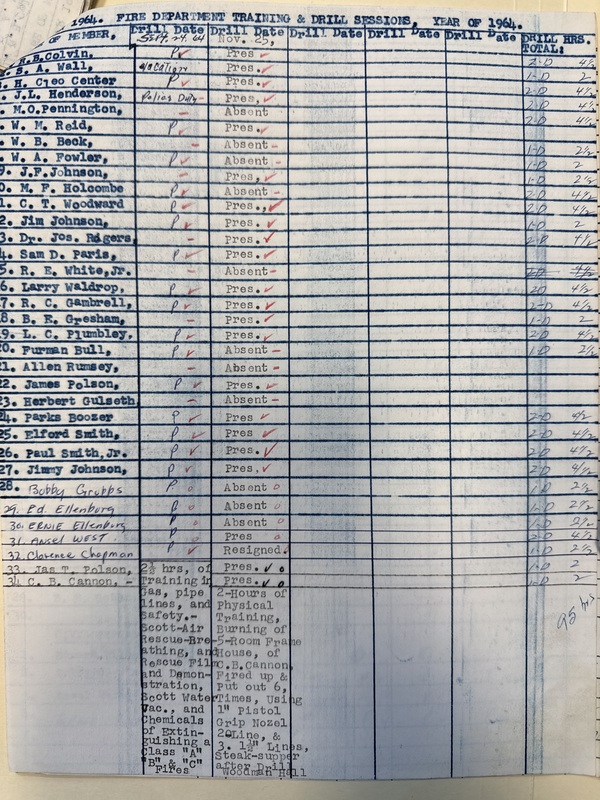 1964. FIRE DEPARTMENT TRAINING & DRILL SESSIONS, YEAR OF 1964.
OF MEMBER, Drill Date Drill Date Drill Date Drill Date Drill Date DRILL HRS.
Sept. 24, 64 Nov. 25, TOTAL:
R.B. Colvin, P✓ Pres. ✓ 2-D 4½
B. A. Wall, vacation Pres. ✓ 1-D 2
H. Cleo Center P ✓ Pres. ✓ 2-D 4½
J.L. Henderson, Police Duty - Pres, ✓ 2-D 4½
M.O. Pennington, - Absent
W. M. Reid, P ✓ Pres. ✓
W. B. Beck, - Absent - 1-D 2½
W. A. Fowler, P ✓ Absent - 1-D 2
9. J.F. Johnson, - Pres, ✓ 1-D 2½
0. M. F. Holcombe P ✓ Absent - 2-D 4½
1. C. T. Woodward P ✓ Pres., ✓ 2-D 4½
2. Jim Johnson, P ✓ Pres. ✓ 1-D 2
3. Dr. Jos. Rogers, - Pres. ✓ 2-D
4. Sam D. Paris, P ✓ Pres. ✓
5. R. E. White, Jr. - Absent -
6. Larry Waldrop, P ✓ Pres. ✓ 2D 4½
7. R. C. Gambrell, P ✓ Pres. ✓ 2-D 4½
8. B. E. Gresham, - Pres. ✓ 1-D 2
9. L. C. Plumbley, P ✓ Pres. ✓ 2-D 4½
20. Furman Bull, P ✓ Absent - 1-D 2½
21. Allen Rumsey, - Absent -
22. James Polson, P ✓ Pres. ✓
23. Herbert Gulseth, - Absent -
24. Parks Boozer P ✓ Pres ✓ 2-D 4½
25. Elford Smith, P ✓ Pres ✓ 2-D 4½
26. Paul Smith, Jr. P ✓ Pres. ✓ 2-D 4½
27. Jimmy Johnson, P ✓ Pres, ✓ 2-D 4½
28. Bobby Grubbs P o Absent o 1-D 2½
29. Ed. Ellenburg P o Absent o 1-D 2½
30. ERNIE Ellenburg P o Absent o 1-D 2½
31. Ansel WEST. P o Pres o 2-D 4½
32. Clarence Chapman P ✓ Resigned. 1-D 2½
33. Jas T. Polson, Pres. ✓ o 1-D 2
34 C. B. Cannon, - Pres. ✓ o 1-D 2
95 hrs
2½ hrs, of
Training in
Gas, pipe
lines, and
Safety.-
Scott-Air
Rescue-Bre-
athing, and
Rescue Film
and Demon-
stration,
Scott Water
Vac., and
Chemicals
of Extin-
guishing a
Class "A"
"B" & "C"
Fires
2-Hours of
Physical
Training,
Burning of
5-Room Frame
House, of
C.B.Cannon,
Fired up &
Put out 6,
Times, Using
1" Pistol
Grip Nozel
Line, &
3. 1½" Lines,
Steak-supper
after Drill
Woodman Hall